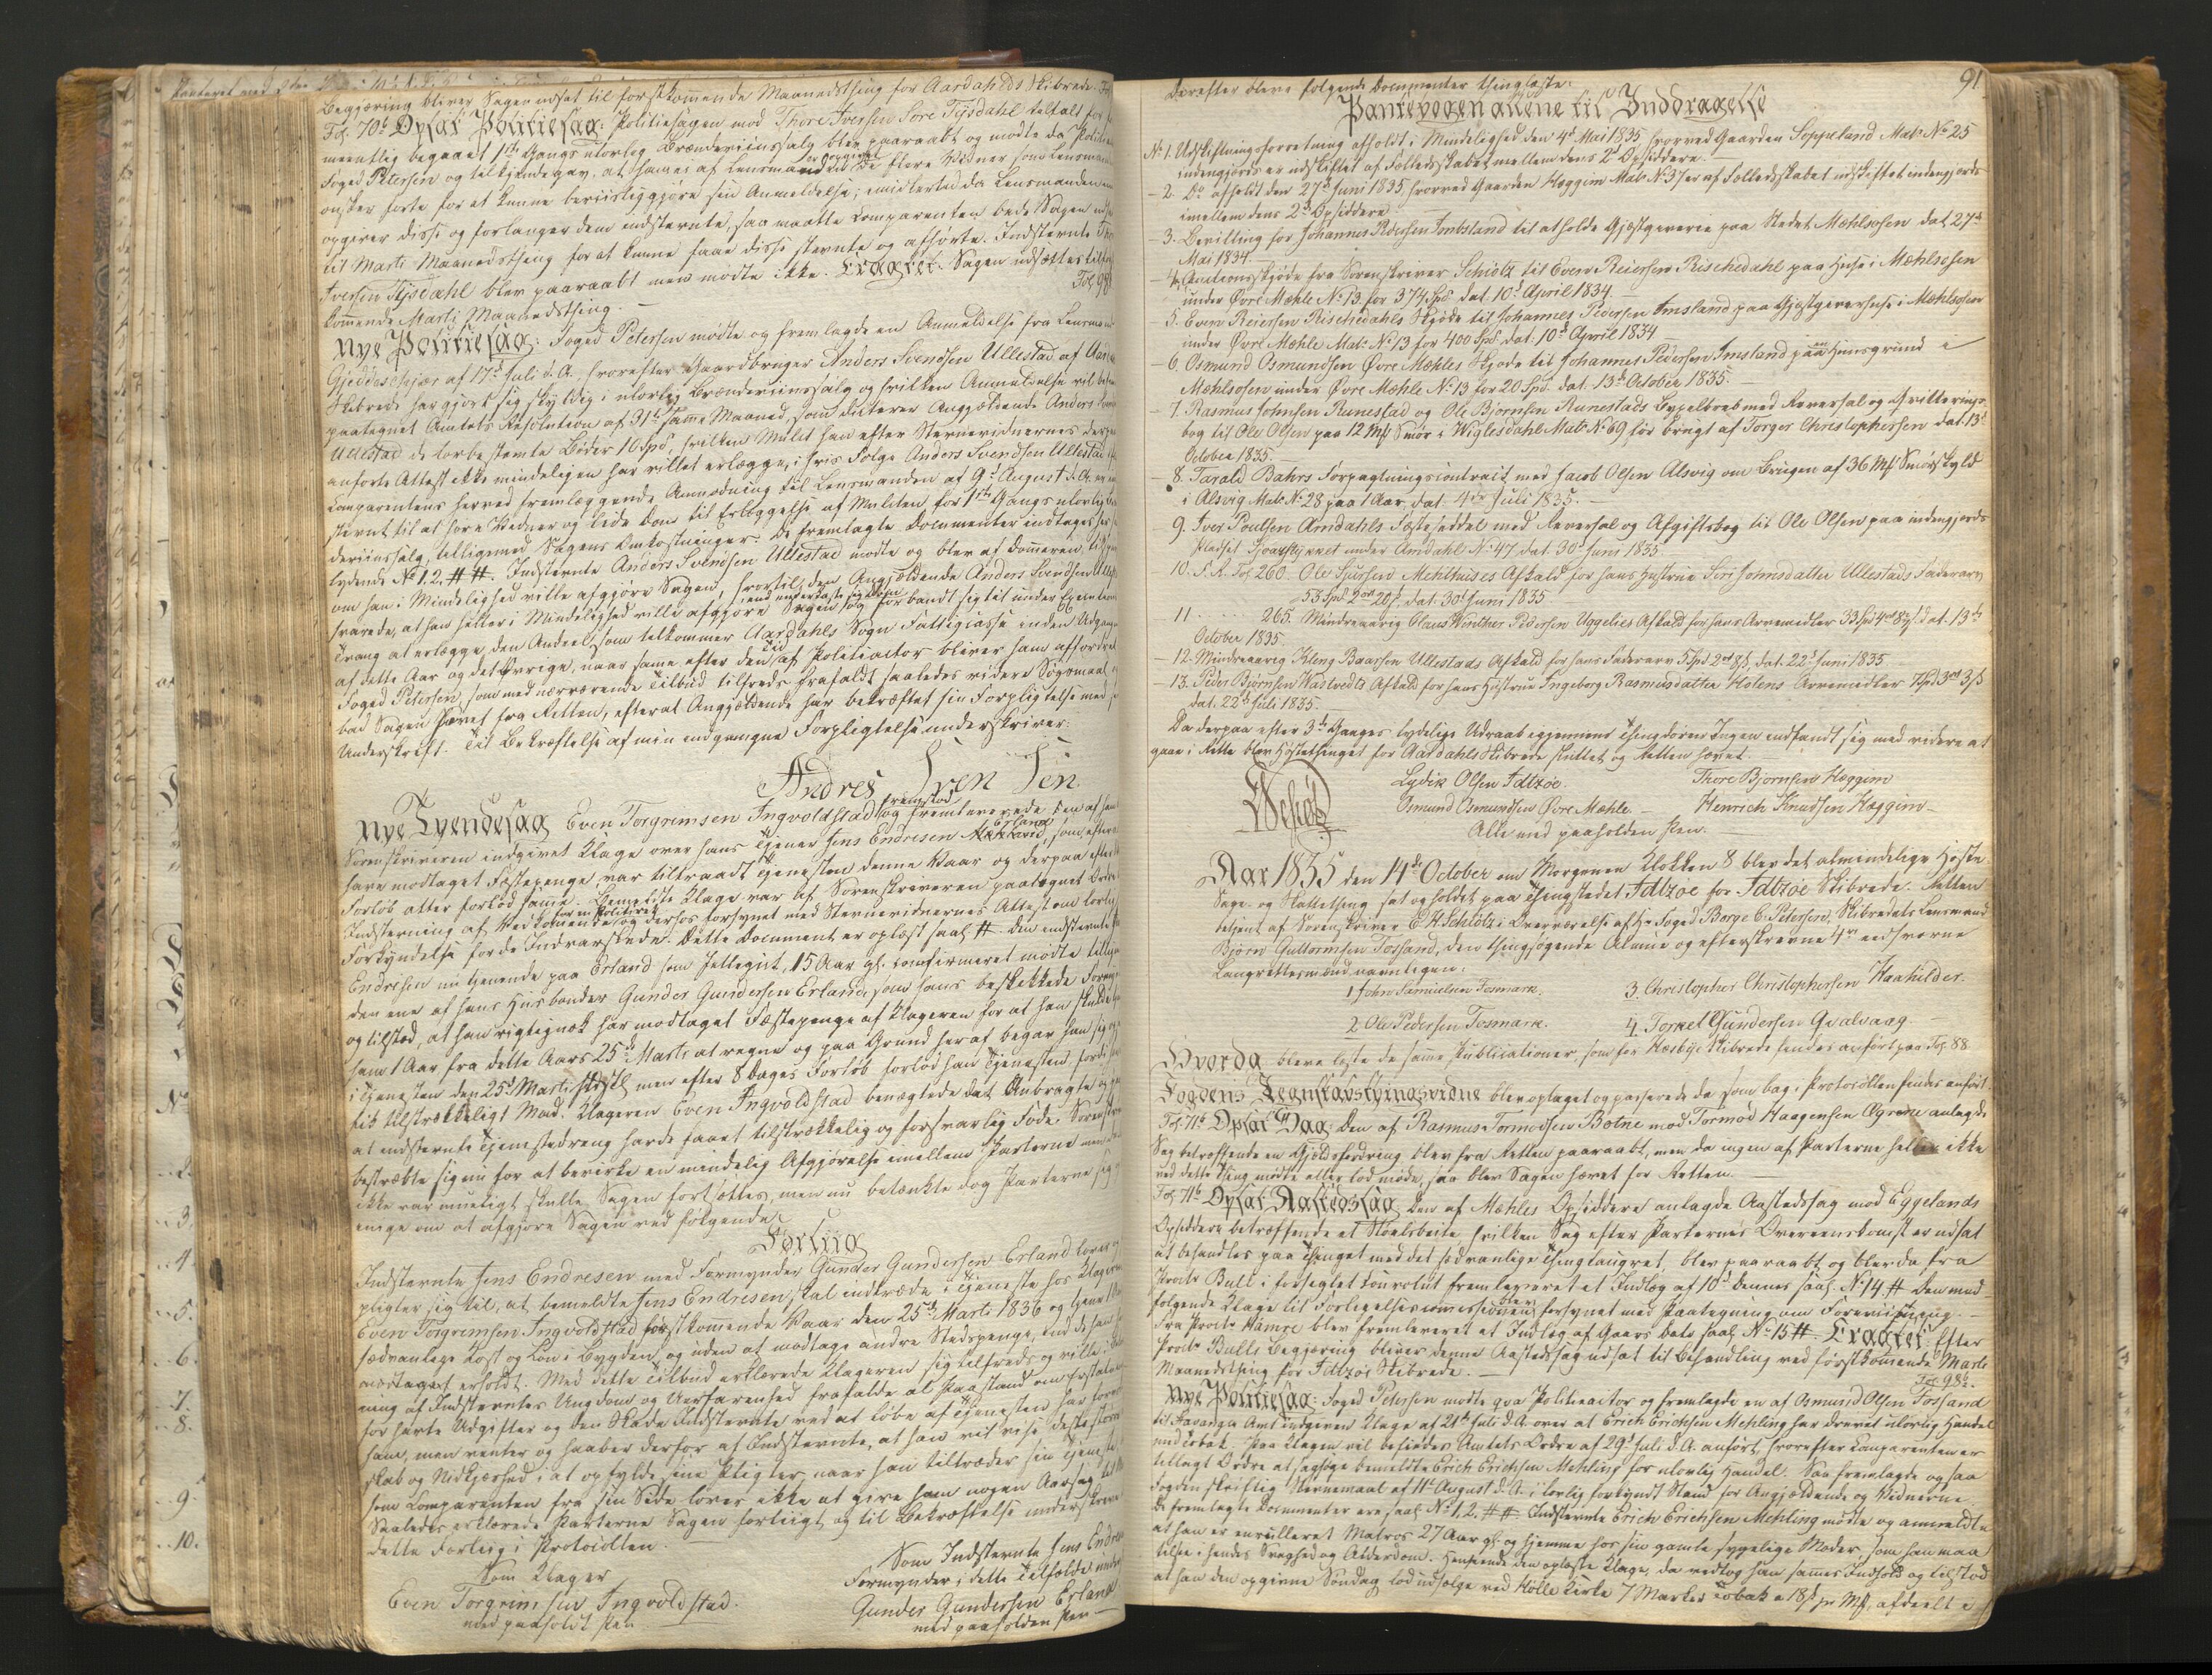 Begjæring bliver Sagen udsat til førstkommende Maanedsthing for Aardahls Skibrede.
Fol. 70b Opsat Politiesag: Politiesagen mod Thore Iversen Løre Tysdahl tiltalt for
meentlig begaaet 1ste Gangs ulovlig Brændeviinssalg blev paaraabt og mødte da Politie
Foged Petersen og tilkjendegav, at ham ei af Lensmanden er opgivet de flere Vidner som Lensmanden
ønsker førte for at kunne beviisliggjøre sin Anmeldelse; imidlertid da Lensmanden nu
opgiver disse og forlanger dem indstevnte, saa maatte Comparenten bede Sagen uds
til Marti Maanedsthing for at kunne faae disse stevnte og afhørte. Indstevnte
Iversen Tysdahl blev paaraabt men mødte ikke. Eragtet: Sagen udsættes til
kommende Marti Maanedsthing. Fol 98
Nye Politiesag: Foged Petersen mødte og fremlagde en Anmeldelse fra Lensmand
Gjeddeschjær af 17de Juli d. A., hvorefter Gaardbruger Anders Svendsen Ullestad af
Skibrede har gjort sig skyldig i ulovlig Brændeviinssalg og hvilken Anmeldelse vil
paategnet Amtets Resolution af 31te samme Maaned, som dicterer Angjældende Anders
Ullestad de lovbestemte Bøder 10 Spd, hvilken Mulct han efter Stevnevidnernes
anførte Attest ikke mindeligen har villet erlægge, i hvis Følge Anders Svendsen Ullestad
Comparentens herved fremlæggende Anmodning til Lensmanden af 9de August d. A. er
stevnt til at høre Vidner og lide Dom til Erlæggelse af Mulcten for 1ste Gangs ulovlig
deviinssalg, tilligemed Sagens Omkostninger. De fremlagte Documenter indtages
lydende No 1. 2. ##. Indstevnte Anders Svendsen Ullestad mødte og blev af Dommeren
om han i Mindelighed ville afgjøre Sagen, hvortil den Angjældende Anders Svendsen
svarede, at han heller i Mindelighed ville afgjøre Sagen og forbandt sig til under
Tvang at erlægge den Andeel, som tilkommer Aardahls Sogn Fattigcasse inden Udgang
af dette Aar og det Øvrige, naar samme efter den Tid af Politiactor bliver ham affordret
Foged Petersen, som med nærværende Tilbud tilfreds frafaldt saaledes videre Søgsmaal
bad Sagen hævet fra Retten, efterat Angjældende har bekræftet sin Forpligtelse med
Underskrift. Til Bekræftelse af min indgangne Forpligtelse underskriver:
Andres Sven Sen.
Nye Tyendesag Even Torgrimsen Ingvoldstad fremstod og fremleverede den af ham
Sorenskriveren indgivet Klage over hans Tjener Jens Endresen Erland, som, efter
have modtaget Fæstepenge, var tiltraadt Tjenesten denne Vaar og derpaa efter
Forløb atter forlod samme. Bemeldte Klage var af Sorenskriveren paategnet
Indstevning af Vedkommende for en Politieret og derhos forsynet med Stevnevidnernes Attest om lovlig
Forkyndelse for de Indvarslede. Dette Document er oplæst saal. #. Den indstevnte
Endresen nu tjenende paa Erland som Jettegut, 15 Aar gl. confirmeret mødte
den ene af hans Husbonder Gunder Gundersen Erland, som hans beskikkede
og tilstod, at han rigtignok har modtaget Fæstepenge af Klageren for at han skulde
ham 1 Aar fra dette Aars 25de Marti at regne og paa Grund heraf begav han sig
i Tjenesten den 25de Marti men efter 8 dages Forløb forlod han Tjenesten fordi
fik tilstrækkeligt Mad. Klageren Even Ingvoldstad benægtede det Anbragte og
at indstevnte Tjenestedreng havde faaet tilstrækkelig og forsvarlig Føde. Sorenskri
bestræbte sig nu for at bevirke en mindelig Afgjørelse imellem Parterne men
ikke var mueligt skulle Sagen fortsættes, men nu betænkte dog Parterne sig
enige om at afgjøre Sagen ved følgende
Forliig
Indstevnte Jens Endresen med Formynder Gunder Gundersen Erland lover
pligter sig til, at bemeldte Jens Endresen, skal indtræde i Tjeneste hos Klageren
Even Torgrimsen Ingvoldstad førstkommende Vaar den 25de Marti 1836 og tjene
sædvanlige Kost og Løn i Bygden, og uden at modtage andre Stedspenge, end de han
modtaget erholdt. Med dette Tilbud erklærede Klageren sig tilfreds og ville i
ning af Indstevntes Ungdom og Uerfarenhed frafalde al Paastand om Erstatning
for havte Udgifter og den Skade Indstevnte ved at løbe af Tjenesten har
ham, men venter og haaber derfor af Indstevnte, at han vil vise desto større
skab og Nidkjærhed i at opfylde sine Pligter, naar han tiltræder sin Tjeneste
som Comparenten fra sin Side lover ikke at give ham nogen Aarsag til
Saaledes erklærede Parterne Sagen forliigt og til Bekræftelse underskrive
dette Forliig i Protocollen.
Som Klager
Even Torgrimsen Ingvoldstad.
med paaholdt Pen
Som Indstevnte Jens Endre
Formynder i dette Tilfælde
Gunder Gundersen Erland
med paaholden Pen
91
Derefter bleve følgende Documenter thinglæste:
Pantebogen allene til Inddragelse
No 1. Udskiftningsforretning afholdt i Mindelighed den 4de Mai 1835 hvorved Gaarden Soppeland Matr. No 25
indengjerds er udskiftet af Fælledsskabet mellem dens 2de Opsiddere.
- 2. Do afholdt den 27de Juni 1835, hvorved Gaarden Hæggim Matr. No 37 er af Fælledsskabet udskiftet indengjerds
imellem dens 2de Opsiddere
- 3. Bevilling for Johannes Pedersen Imbsland til at holde Gjæstgiverie paa Stedet Mæhlsosen dat. 27de
Mai 1834.
- 4. Auctionsskjøde fra Sorenskriver Schiøtz til Even Reiersen Rischedahl paa Huse i Mæhlsosen
under Øvre Mæhle No 13 for 374 Spd dat. 10de April 1834.
5. Even Reiersen Rischedahls Skjøde til Johannes Pedersen Imsland paa Gjæstgiverhuse i Mæhlsosen
under Øvre Mæhle Matr. No 13 for 400 Spd. dat. 10de April 1834
- 6. Osmund Osmundsen Øvre Mæhles Skjøde til Johannes Pedersen Imsland paa en Huusgrund i
Mæhlsosen under Øvre Mæhle No 13 for 20 Spd. dat. 13de October 1835.
- 7. Rasmus Johnsen Runestad og Ole Bjørnsen Runestads Bygselbrev med Reversal og Qvitterings-
bog til Ole Olsen paa 12 Mk Smør i Wiglesdahl Matr. No 69 før brugt af Torger Christophersen dat. 13de
October 1835.
- 8. Tarald Bahrs Forpagtningscontract med Jacob Olsen Alsvig om Brugen af 36 Mk Smørskyld
i Alsvig Matr. No 28 paa 1 Aar, dat. 4de Juli 1835.
9. Iver Poulsen Amdahls Fæsteseddel med Reversal og Afgiftsbog til Ole Olsen paa indengjerds
Pladset under Amdahl No 47 dat. 30te Juni 1835.
10. S. A. Fol. 260. Ole Sjursen Mehlhuses Afkald for hans Hustrue Siri Johnsdatter Ullestads Fadrearv
53 Spd 2 ort 20 s, dat. 30te Juni 1835
11 ..... 265. Mindreaarig Claus Winther Pedersen Uggelies Afkald for hans Arvemidler 33 Spd 4 ort 8 s dat. 13de
October 1835
- 12. Mindreaarig Kleng Baarsen Ullestads Afkald for hans Faderarv 5 Spd 2 ort 8 s, dat. 22de Juni 1835
- 13. Peder Bjørnsen Wastvedts Afkald for hans Hustrue Ingeborg Rasmusdatter Holens Arvemidler 7 Spd 3 ort 3 s
dat. 22de Juli 1835.
Da derpaa efter 3de Ganges lydelige Udraab igjennem Thingdøren Ingen indfandt sig med videre at
gaae i Rette blev Høstethinget for Aardahls Skibrede sluttet og Retten hævet.
Lydik Olsen Idtzøe.
Thore Bjørnsen Hæggim
Osmund Osmundsen Øvre Mæhle -
Henrich Knudsen Hæggim -
Alle med paaholden Pen.
Aar 1835 den 14de October om Morgenen Klokken 8 blev det almindelige Høste-
Sage- og Skattething sat og holdet paa Thingstedet Idtzøe for Idtzøe Skibrede. Retten
betjent af Sorenskriver E H Schiøtz i Overværelse af Hr Foged Børge C. Petersen, Skibredets Lensmand
Bjørn Guttormsen Fossand, den thingsøgende Almue og efterskrevne 4re eedsvorne
Laugrettesmænd navnligen:
1 John Samuelsen Tosmark.
3. Christopher Christophersen Haahilder.
2. Ole Pedersen Tosmark.
4. Torkel Gundersen Qvalvaag.
Hvorda bleve læste de samme Publicationer, som for Hesbye Skibrede findes anført paa Fol. 88
Fogdens Regnskabsthingsvidne blev optaget og passerede da som bag i Protocollen findes anført.
Fol. 71b Opsat Sag: Den af Rasmus Tormodsen Botne mod Tormod Haagensen Øgreie anlagde
Sag betræffende en Gjeldsfordring blev fra Retten paaraabt, men da ingen af Parterne heller ikke
ved dette Thing mødte eller lod møde, saa blev Sagen hævet for Retten.
Fol. 71b Opsat Aastedssag Den af Mæhles Opsiddere anlagde Aastedssag mod Eggelands
Opsiddere betræffende et Støelsbeite hvilken Sag efter Parternes Overeenskomst er udsat
at behandles paa Thinget med det sædvanlige Thinglaugret, blev paaraabt og blev da fra
Procr Bull i forseglet Convolut fremleveret et Indlæg af 10de dennes saal. No 14 # Den med-
følgende Klage til Forligelsescommissionen blev forsynet med Paategning om Foreviisning.
Fra Procr Hamre blev fremleveret et Indlæg af Gaars Dato saal. No 15 #. Eragtet: Efter
Procr Bulls Begjæring bliver denne Aastedssag udsat til Behandling ved førstkommende Marti
Maanedsthing for Idtzøe Skibrede.
Fol. 98b.
Nye Politiesag: Foged Petersen mødte qva Politieactor og fremlagde en af Osmund Olsen Fossand
til Stavanger Amt indgiven Klage af 21de Juli d. A. over at Erich Erichsen Mehling har drevet ulovlig Handel
med Tobak. Paa Klagen vil befindes Amtets Ordre af 29de Juli d. A. anført, hvorefter Comparenten er
tillagt Ordre at sagsøge bemeldte Erich Erichsen Mehling for ulovlig Handel. Han fremlagde og saa
Fogden skriftlig Stevnemaal af 11te August d. A. i lovlig forkyndt Stand for Angjældende og Vidnerne
De fremlagte Documenter ere saal. No 1. 2. ##. Indstevnte Erich Erichsen Mehling mødte og anmeldte
at han er enrulleret Matros 27 Aar gl. og hjemme hos sin gamle sygelige Moder, som han maa
hjelpe i hendes Svaghed og Alderdom. Henseende den oplæste Klage, da vedtog han sammes Indhold og tilstod
at han den opgivne Søndag lod udsælge ved Holle Kirke 7 Marker Tobak a 18 s pr Mk, afdeelt i